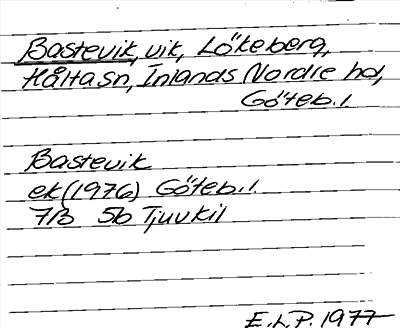 Bastevik, vik, Lökeberg,
Hålta sn, Inlands Nordre hd,
Göteb. l.
Bastevik
ek (1976) Göteb. l.
7B 5b Tjuvkil
E.L.P. 1977